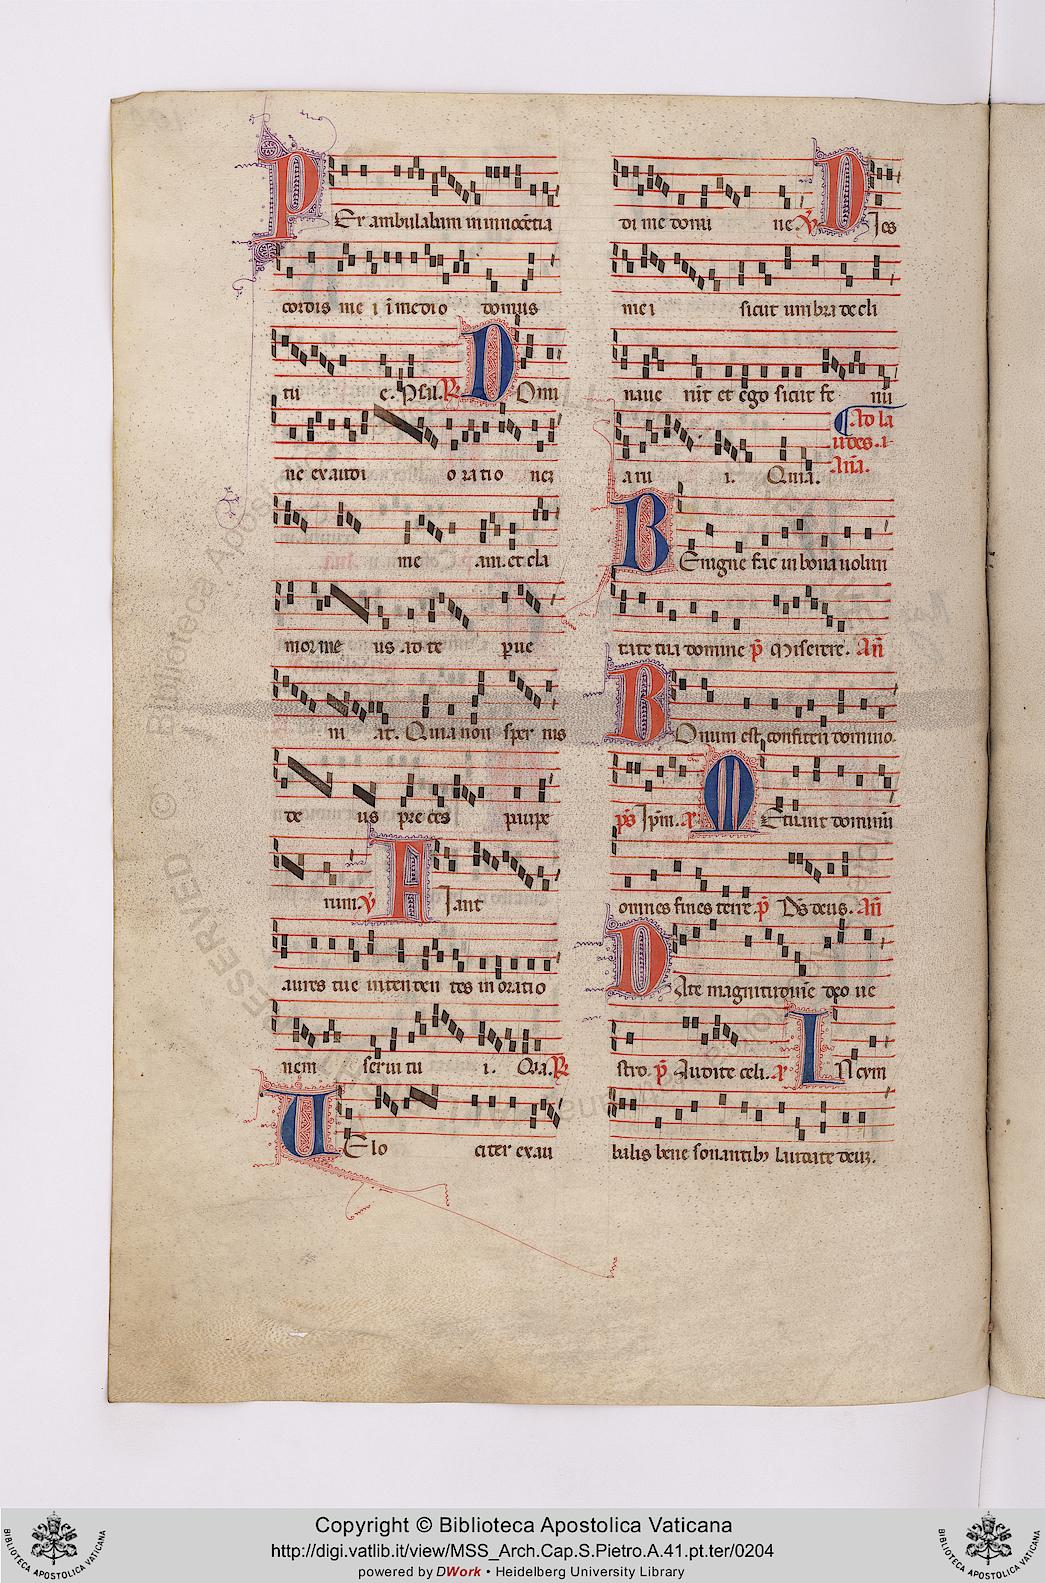 PEr ambulabam in innocētia
cordis me i ī medio domus
tu e. Psn. R DOmi
ne exaudi o ratio nez
me am. et cla
mor me us ad te perue
ni at. Quia non sper nis
de us pre ces paupe
rum. V FIant
aures tue inten den tes in oratio
nem serui tu i. Ora. R
VElo citer exau
di me domi ne V DIes
me i sicut umbra decli
naue runt et ego sicut fe nū
aru i. Quia.
Ad la
udes. i.
Aña.
BEnigne fac in bona uolun
tate tua domine p̄s Miserere. Añ
BOnum est confiteri domino.
p̄s Ip̄m. a METuant dominū
omnes fines terre. p̄s D̄s deus. Añ
DAte magnitudinē deo no
stro. p̄s Audite celi. a IN cym
balis bene sonantibꝫ laudate deuz.
RESERVED © Biblioteca Apostolica Vaticana
Copyright © Biblioteca Apostolica Vaticana
http://digi.vatlib.it/view/MSS_Arch.Cap.S.Pietro.A.41.pt.ter/0204
powered by DWork • Heidelberg University Library
BIBLIOTECA APOSTOLICA VATICANA
BIBLIOTECA APOSTOLICA VATICANA